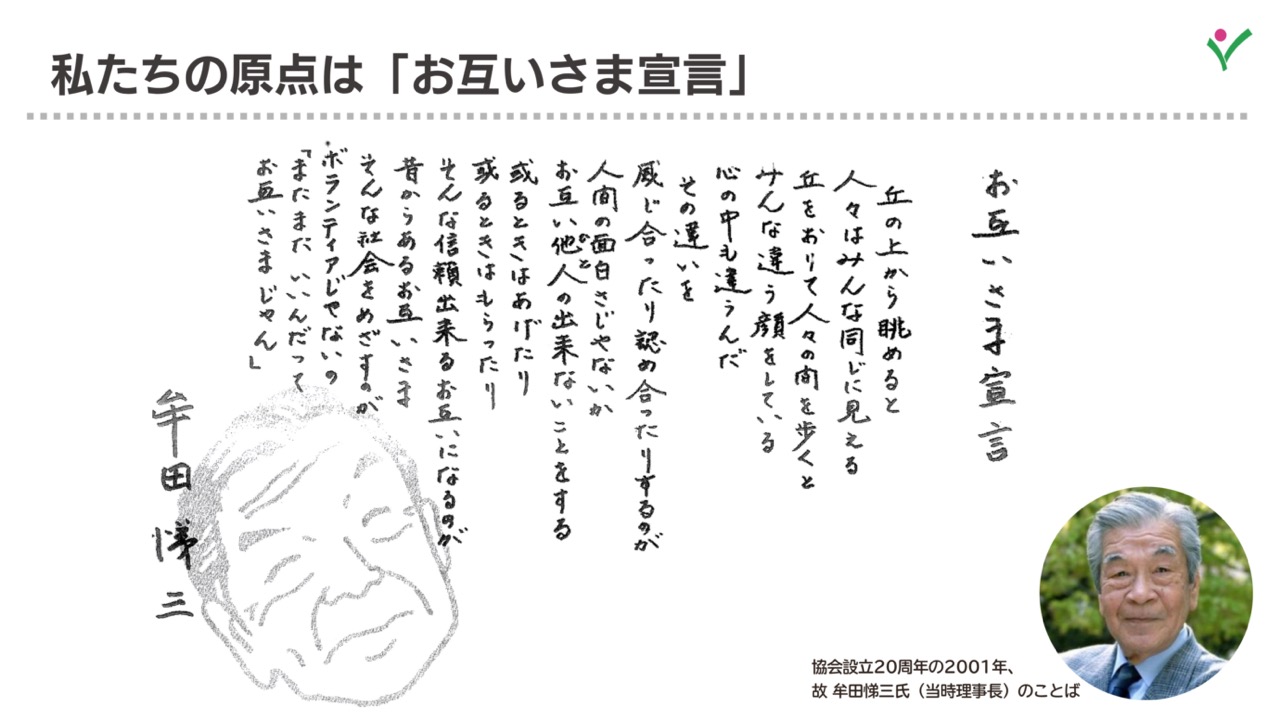 私たちの原点は「お互いさま宣言」
お互いさま宣言
丘の上から眺めると
人々はみんな同じに見える
丘をおりて人々の間を歩くと
みんな違う顔をしている
心の中も違うんだ
その違いを
感じ合ったり認め合ったりするのが
人間の面白さじゃないか
お互い他人の出来ないことをする
ひと
或るときはあげたり
或るときはもらったり
そんな信頼出来るお互いになるのが
昔からあるお互いさま
そんな社会をめざすのが
ボランティアじゃないの
「まだまだいいんだって
お互いさまじゃん」
牟田悌三
協会設立20周年の2001年、
故 牟田悌三氏（当時理事長）のことば